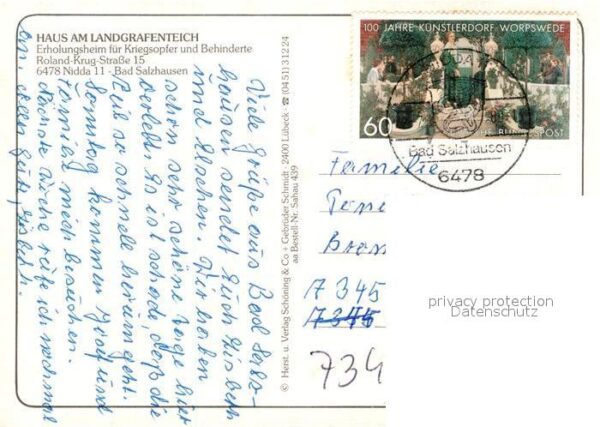 HAUS AM LANDGRAFENTEICH
Erholungsheim für Kriegsopfer und Behinderte
Roland-Krug-Straße 15
6478 Nidda 11 - Bad Salzhausen
© Herst. u. Verlag Schöning & Co + Gebrüder Schmidt · 2400 Lübeck · ☎ (04 51) 3 12 24
aa Bestell-Nr. Sahau 439
100 JAHRE KÜNSTLERDORF WORPSWEDE
60
BUNDESPOST
NIDDA
Bad Salzhausen
6478
Viele Grüße aus Bad Salz-
hausen sendet Euch
und Elschen. Wir haben
schon sehr schöne Tage hier
verlebt. Es ist schade, daß die
Zeit so schnell herum geht.
Sonntag kommen und
mich besuchen.
Nächste Woche rufe ich nochmal
an.
Familie
7345
7345
734
privacy protection
Datenschutz